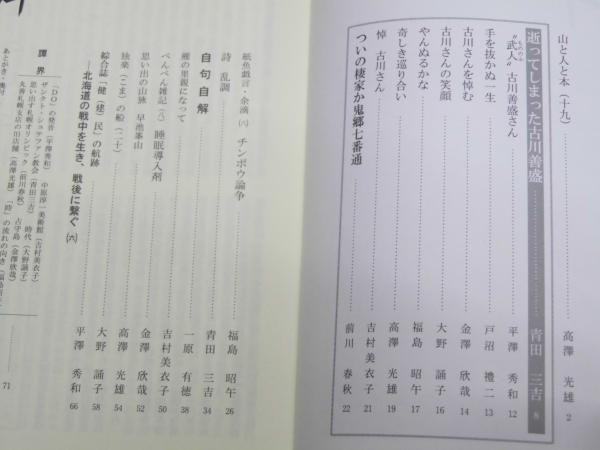 山と人と本（十九）……………高澤 光雄 2
逝ってしまった古川善盛……………青田 三吉 8
“武人”古川善盛さん……………平澤 秀和 12
もののふ
手を抜かぬ一生……………戸沼 禮二 13
古川さんを悼む……………金澤 欣哉 14
古川さんの笑顔……………大野 誦子 16
やんぬるかな……………福島 昭午 17
奇しき巡り合い……………高澤 光雄 19
悼 古川さん……………吉村美衣子 21
ついの棲家か鬼郷七番通……………前川 春秋 22
紙魚戯言・余滴（八）チンポウ論争……………福島 昭午 26
詩 乱調
自句自解……………青田 三吉 34
雁の里親になって……………一原 有徳 38
ぺんぺん雑記（六）睡眠導入剤……………吉村美衣子 50
思い出の山旅 早池峯山……………金澤 欣哉 52
独楽（こま）の船（二十）……………高澤 光雄 54
綜合誌「健（建）民」の航跡……………大野 誦子 58
―北海道の戦中を生き、戦後に繋ぐ（六）……………平澤 秀和 66
譚界
「DO」の発音（平澤秀和） 中原淳一美術館（吉村美衣子）
ザンクト・シュテファン教会（青田三吉） 時代（大野誦子）
思い出す札幌オリンピック（前川春秋） 占守島（金澤欣哉）
丸善札幌支店の旧店陳（高澤光雄） 「時」の流れの向き（福島昭午）
71
あとがき・奥付